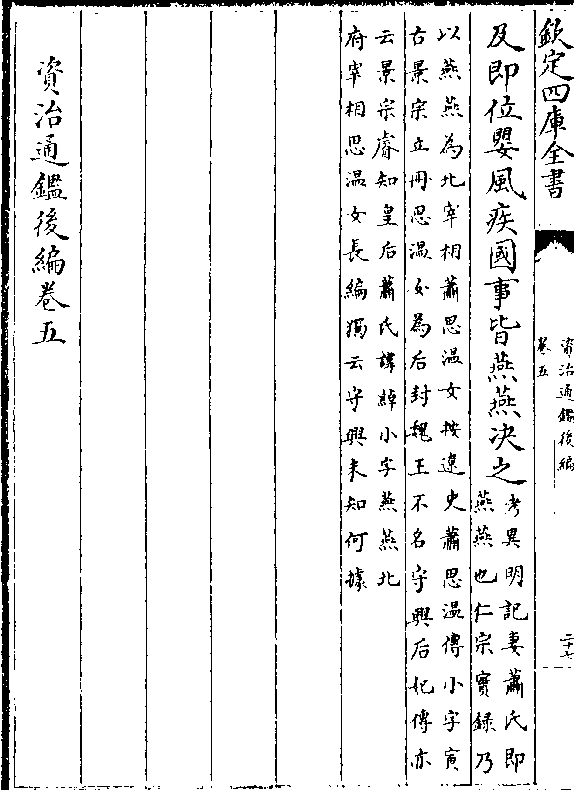 欽定四庫全書
資治通鑑後編
卷五
二十七
及即位嬰風疾國事皆燕燕決之
考異明記妻蕭氏即
燕燕也仁宗實録乃
以燕燕為北宰相蕭思温女按遼史蕭思温傳小字寅
古景宗立册思温女為后封魏王不名守興后妃傳亦
云景宗睿知皇后蕭氏諱綽小字燕燕北
府宰相思温女長編獨云守興未知何據
資治通鑑後編卷五